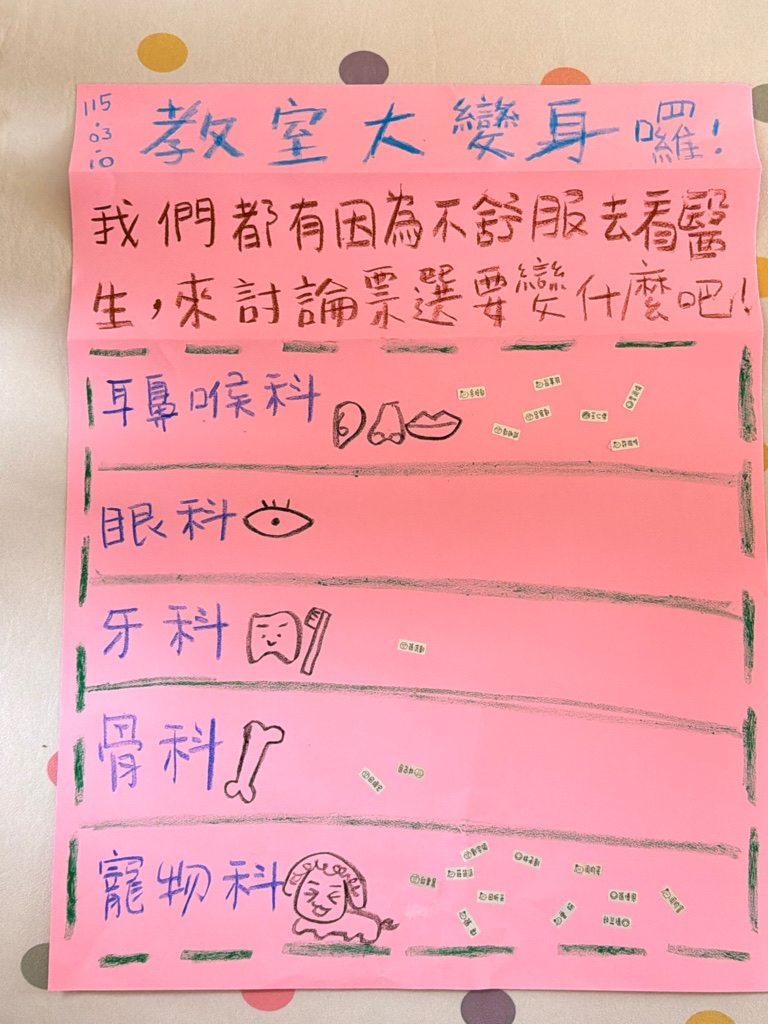 115.03.10
教室大變身囉!
我們都有因為不舒服去看醫
生,來討論票選要變什麼吧!
耳鼻喉科
眼科
牙科
骨科
寵物科